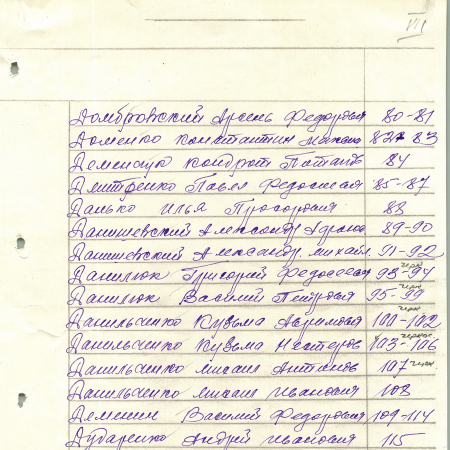 VII
Домбровский Арсень Федоровыч 80-81
Доменко Константин Михайло 82-83
Деменчук Кондрат Потапов 84
Дмитренко Павел Федосеевич 85-87
Данько Илья Прохорович 88
Данишевский Александр Адамов 89-90
Данишевский Александр. михайл. 91-92
Данилюк Григорий Федосеевич 93-94
Данилюк Василий Петрович 95-99
Данильченко Кузьма Абрамович 100-102
Данильченко Кузьма Нестеров 103-106
Данильченко михаил Антонов 107
Данильченко михаил Иванович 108
Демешин Василий Федорович 109-114
Дударенко Андрей Иванович 115